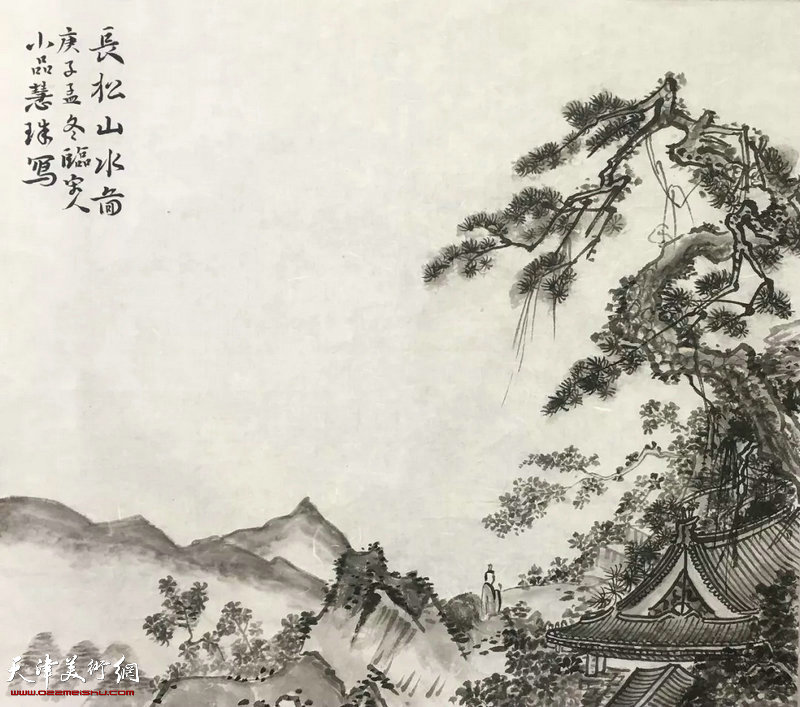 長松山水啚
庚子孟冬臨宋人
小品慧珠寫
天津美術網
www.022meishu.com